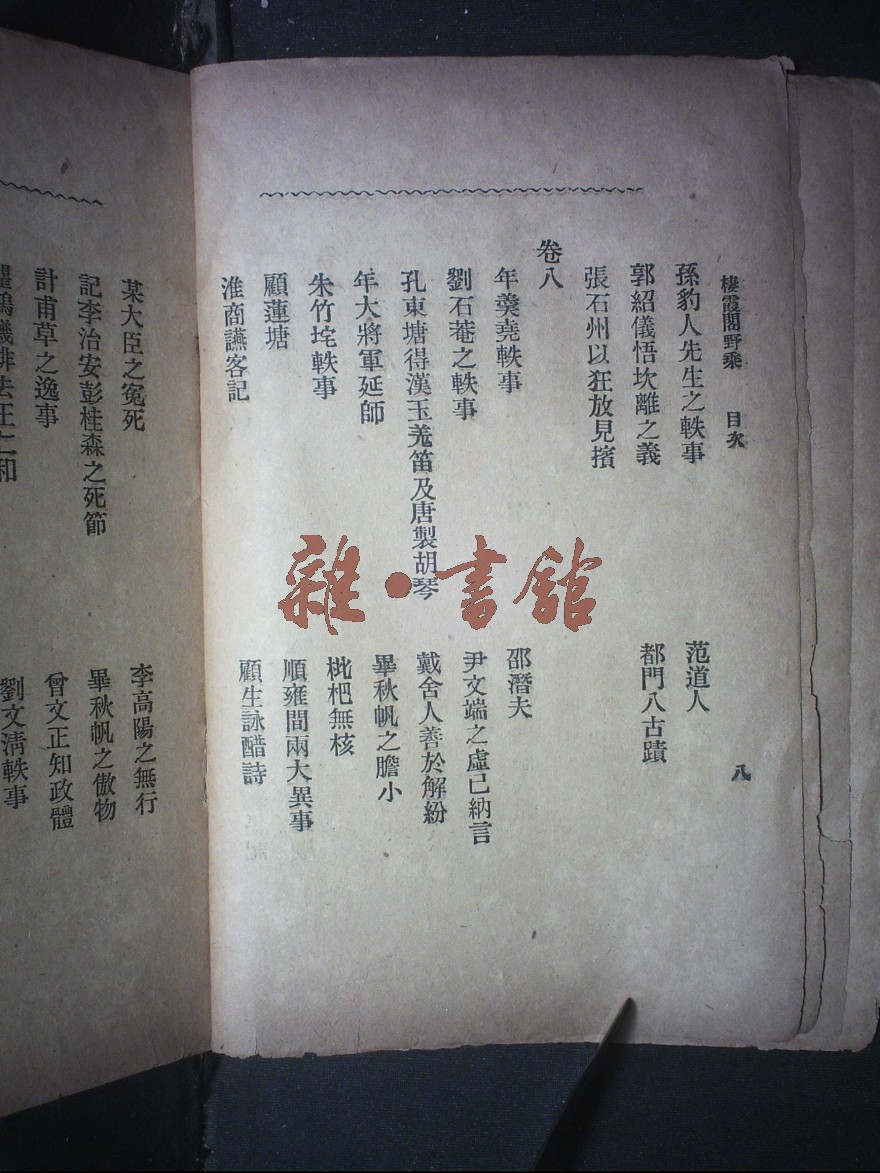 棲霞閣野乘　目次　八
孫豹人先生之軼事　范道人
郭紹儀悟坎離之義　都門八古蹟
張石州以狂放見擯
卷八
年羹堯軼事　邵潛夫
劉石菴之軼事　尹文端之虛己納言
孔東塘得漢玉羌笛及唐製胡琴　戴舍人善於解紛
年大將軍延師　畢秋帆之膽小
朱竹垞軼事　枇杷無核
顧蓮塘　順雍間兩大異事
淮商讌客記　顧生詠醋詩
某大臣之冤死　李高陽之無行
記李治安彭桂森之死節　畢秋帆之傲物
計甫草之逸事　曾文正知政體
劉文清軼事
雜·書館